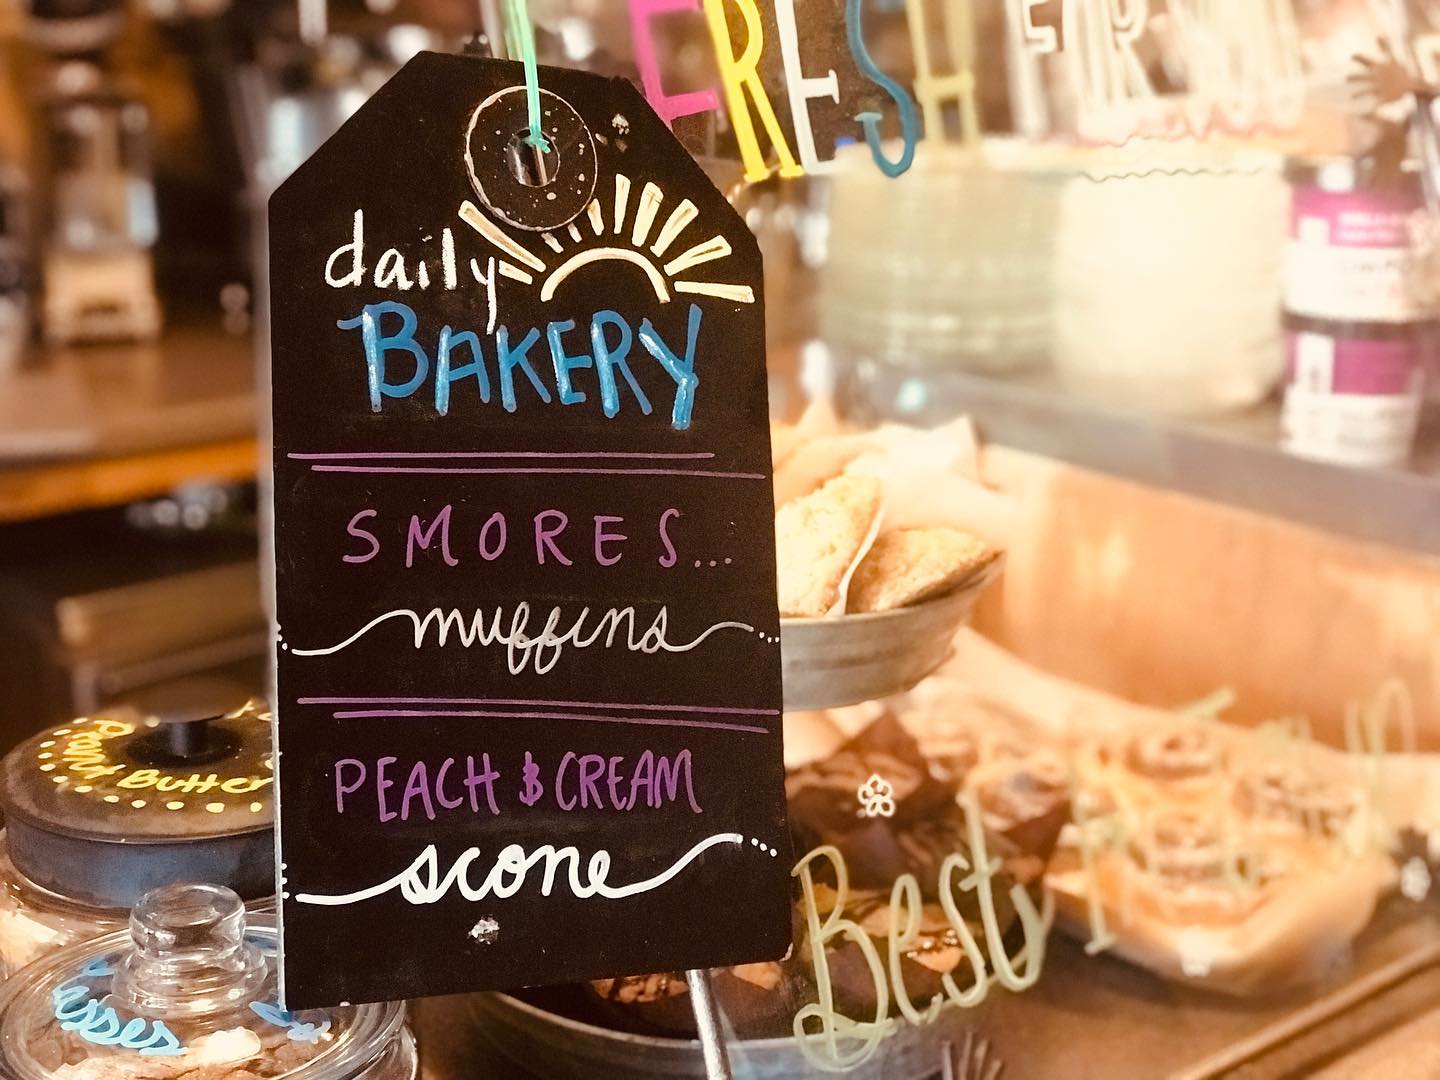 FRESH FOR YOU
daily
BAKERY
SMORES...
muffins
PEACH & CREAM
scone
Peanut Butter
Best